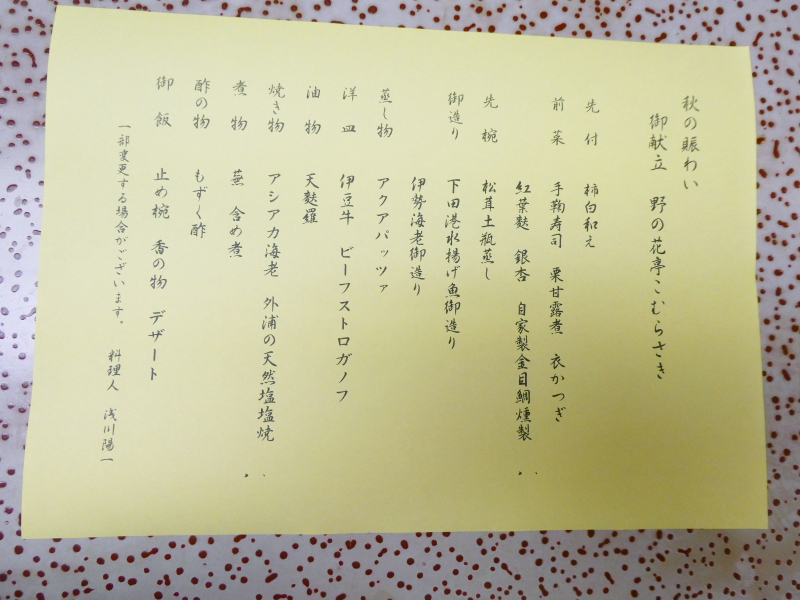 秋の賑わい
御献立 野の花亭こむらさき
先付 柿白和え
前菜 手鞠寿司 栗甘露煮 衣かつぎ
紅葉麩 銀杏 自家製金目鯛燻製
先椀 松茸土瓶蒸し
御造り 下田港水揚げ魚御造り
伊勢海老御造り
蒸し物 アクアパッツァ
洋皿 伊豆牛 ビーフストロガノフ
油物 天麩羅
焼き物 アシアカ海老 外浦の天然塩塩焼
煮物 蕪 含め煮
酢の物 もずく酢
御飯 止め椀 香の物 デザート
一部変更する場合がございます。 料理人 浅川陽一